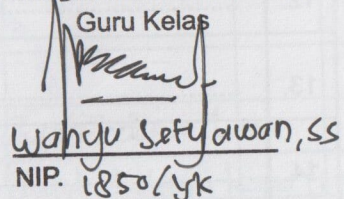 Guru Kelas
Wahyu Setyawan, SS
NIP. 1850/YK